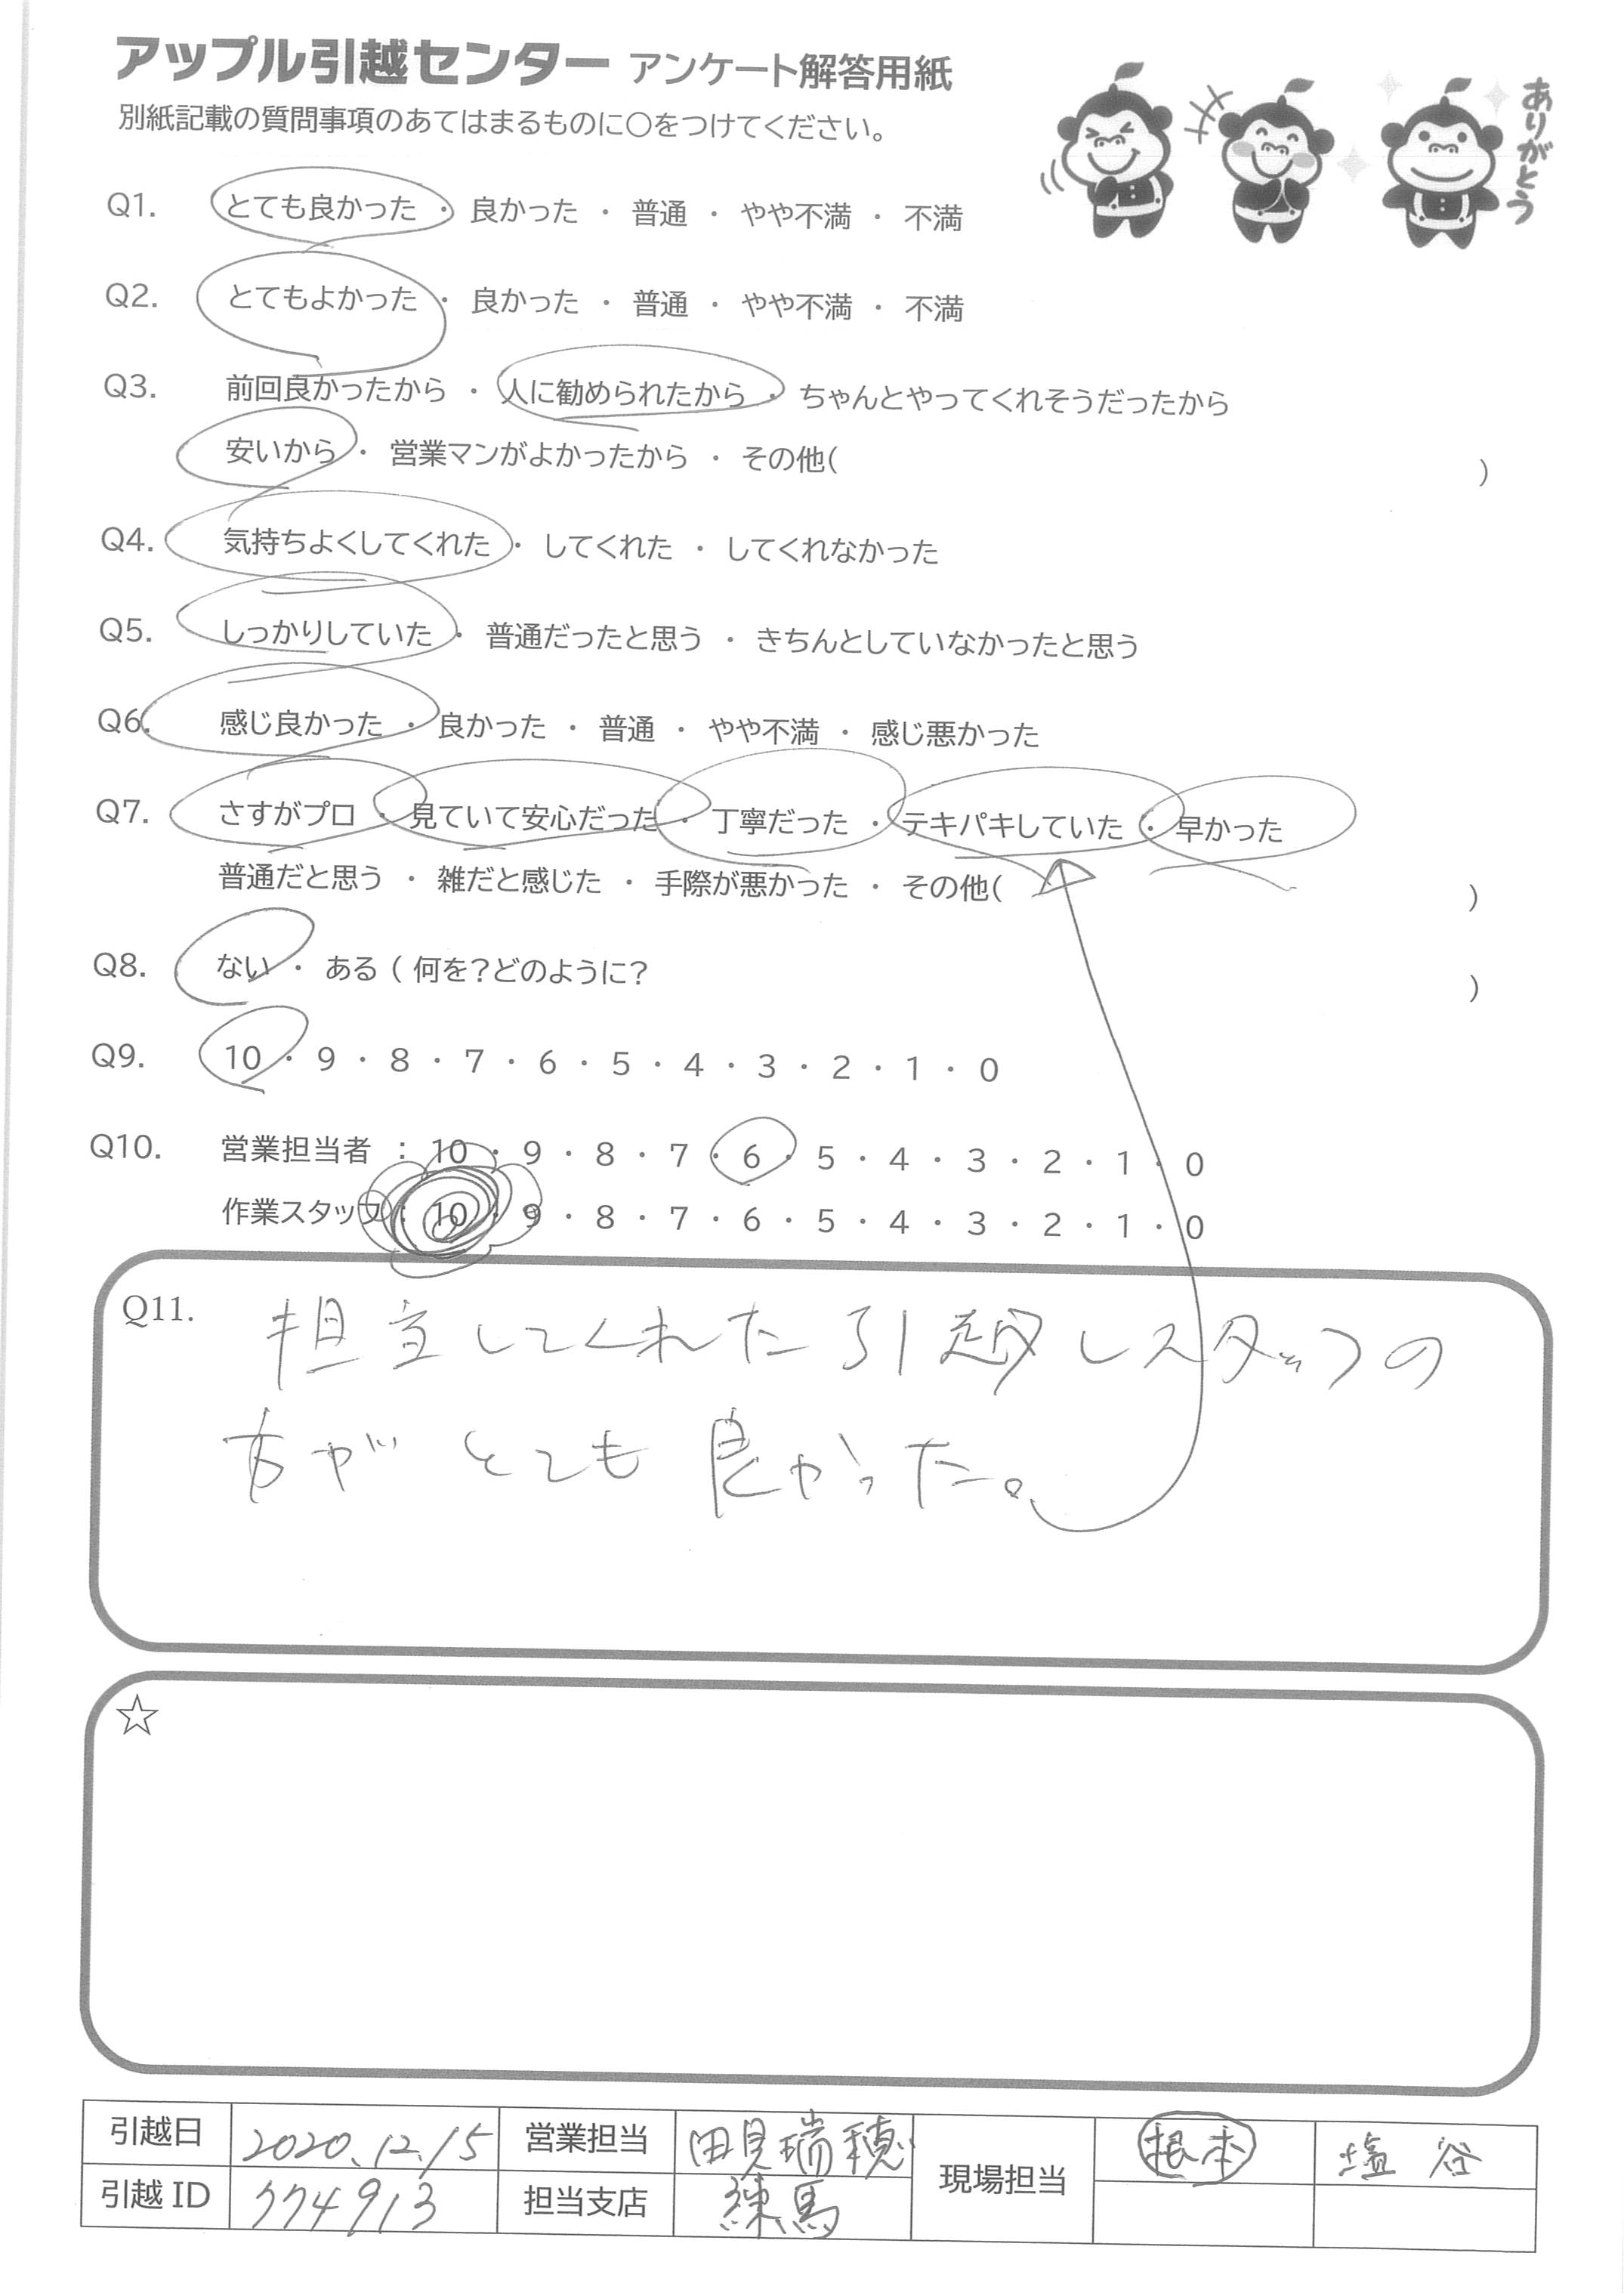 アップル引越センター アンケート解答用紙
別紙記載の質問事項のあてはまるものに○をつけてください。
ありがとう
Q1. とても良かった ・ 良かった ・ 普通 ・ やや不満 ・ 不満
Q2. とてもよかった ・ 良かった ・ 普通 ・ やや不満 ・ 不満
Q3. 前回良かったから ・ 人に勧められたから ・ ちゃんとやってくれそうだったから
安いから ・ 営業マンがよかったから ・ その他( )
Q4. 気持ちよくしてくれた ・ してくれた ・ してくれなかった
Q5. しっかりしていた ・ 普通だったと思う ・ きちんとしていなかったと思う
Q6. 感じ良かった ・ 良かった ・ 普通 ・ やや不満 ・ 感じ悪かった
Q7. さすがプロ ・ 見ていて安心だった ・ 丁寧だった ・ テキパキしていた ・ 早かった
普通だと思う ・ 雑だと感じた ・ 手際が悪かった ・ その他( )
Q8. ない ・ ある ( 何を?どのように? )
Q9. 10 ・ 9 ・ 8 ・ 7 ・ 6 ・ 5 ・ 4 ・ 3 ・ 2 ・ 1 ・ 0
Q10. 営業担当者 : 10 ・ 9 ・ 8 ・ 7 ・ 6 ・ 5 ・ 4 ・ 3 ・ 2 ・ 1 ・ 0
作業スタッフ : 10 ・ 9 ・ 8 ・ 7 ・ 6 ・ 5 ・ 4 ・ 3 ・ 2 ・ 1 ・ 0
Q11. 担当してくれた引越しスタッフの
方が とても 良かった。
☆
引越日 2020.12.15 営業担当 田見瑞穂 現場担当 根本 塩谷
引越ID 774913 担当支店 練馬